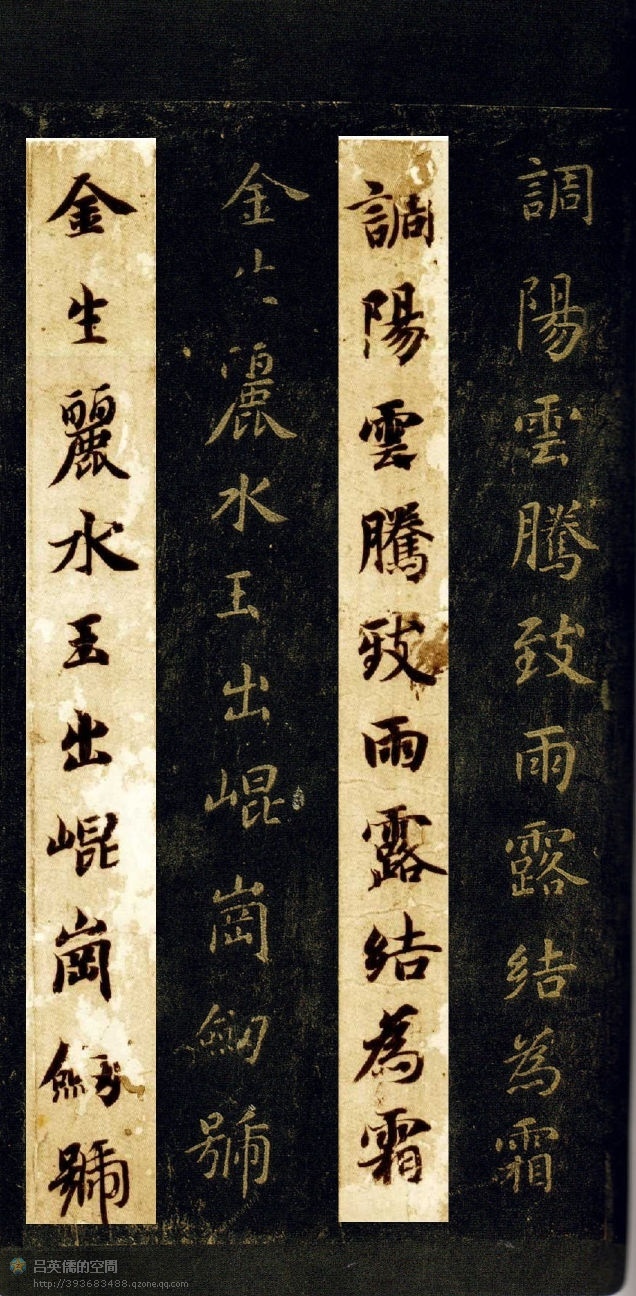 調陽雲騰致雨露結為霜
調陽雲騰致雨露結為霜
金生麗水玉出崐崗劒號
金生麗水玉出崐崗劒號
吕英儒的空間
http://393683488.qzone.qq.com